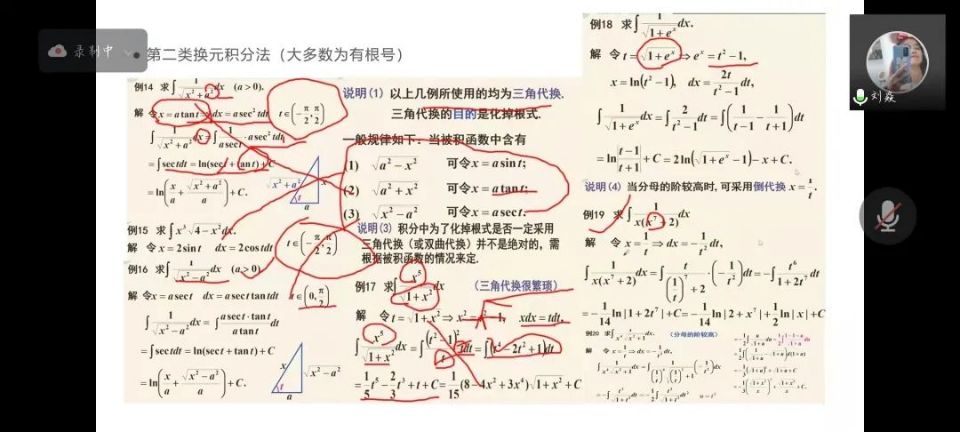 录制中
• 第二类换元积分法（大多数为有根号）
例14 求∫ 1/√(x²+a²) dx (a>0).
解 令x=a tan t ⇒ dx=a sec² t dt t∈(-π/2, π/2)
∫ 1/√(x²+a²) dx=∫ 1/(a sec t)·a sec² t dt
=∫sec t dt=ln(sec t+tan t)+C
=ln(x/a+√(x²+a²)/a)+C.
√(x²+a²)
x
t
a
例15 求∫x³√(4-x²)dx.
解 令x=2sin t dx=2cos t dt t∈(-π/2, π/2)
例16 求∫ 1/√(x²-a²) dx (a>0)
解 令x=a sec t dx=a sec t tan t dt t∈(0, π/2)
∫ 1/√(x²-a²) dx=∫ a sec t·tan t/(a tan t) dt
=∫sec t dt=ln(sec t+tan t)+C
=ln(x/a+√(x²-a²)/a)+C.
x
√(x²-a²)
t
a
说明(1) 以上几例所使用的均为三角代换.
三角代换的目的是化掉根式.
一般规律如下：当被积函数中含有
(1) √(a²-x²) 可令x=a sin t;
(2) √(a²+x²) 可令x=a tan t;
(3) √(x²-a²) 可令x=a sec t.
说明(3) 积分中为了化掉根式是否一定采用
三角代换（或双曲代换）并不是绝对的，需
根据被积函数的情况来定.
例17 求∫ x⁵/√(1+x²) dx （三角代换很繁琐）
解 令t=√(1+x²) ⇒ x²=t²-1, xdx=tdt,
∫ x⁵/√(1+x²) dx=∫ (t²-1)²/t tdt=∫(t⁴-2t²+1)dt
=1/5 t⁵-2/3 t³+t+C=1/15(8-4x²+3x⁴)√(1+x²)+C
例18 求∫ 1/√(1+eˣ) dx.
解 令t=√(1+eˣ) ⇒ eˣ=t²-1,
x=ln(t²-1), dx=2t/(t²-1) dt,
∫ 1/√(1+eˣ) dx=∫ 2/(t²-1) dt=∫(1/(t-1)-1/(t+1))dt
=ln|(t-1)/(t+1)|+C=2ln(√(1+eˣ)-1)-x+C.
说明(4) 当分母的阶较高时, 可采用倒代换 x=1/t.
例19 求∫ 1/(x(x⁷+2)) dx
解 令 x=1/t ⇒ dx=-1/t² dt,
∫ 1/(x(x⁷+2)) dx=∫ t/((1/t)⁷+2)·(-1/t²)dt=-∫ t⁶/(1+2t⁷) dt
=-1/14 ln|1+2t⁷|+C=-1/14 ln|2+x⁷|+1/2 ln|x|+C
例20 求∫ 1/(x⁴√(x²+1)) dx. （分母的阶较高）
解 令x=1/t ⇒ dx=-1/t² dt,
刘焱